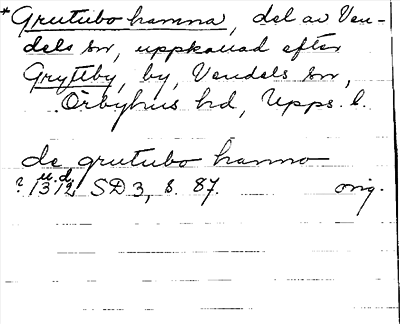 *Grutubo hamna, del av Ven-
dels sn, uppkallad efter
Gryttby, by, Vendels sn,
Örbyhus hd, Upps. l.
de grutubo hamno
? u.d. 1312 SD 3, s. 87. orig.